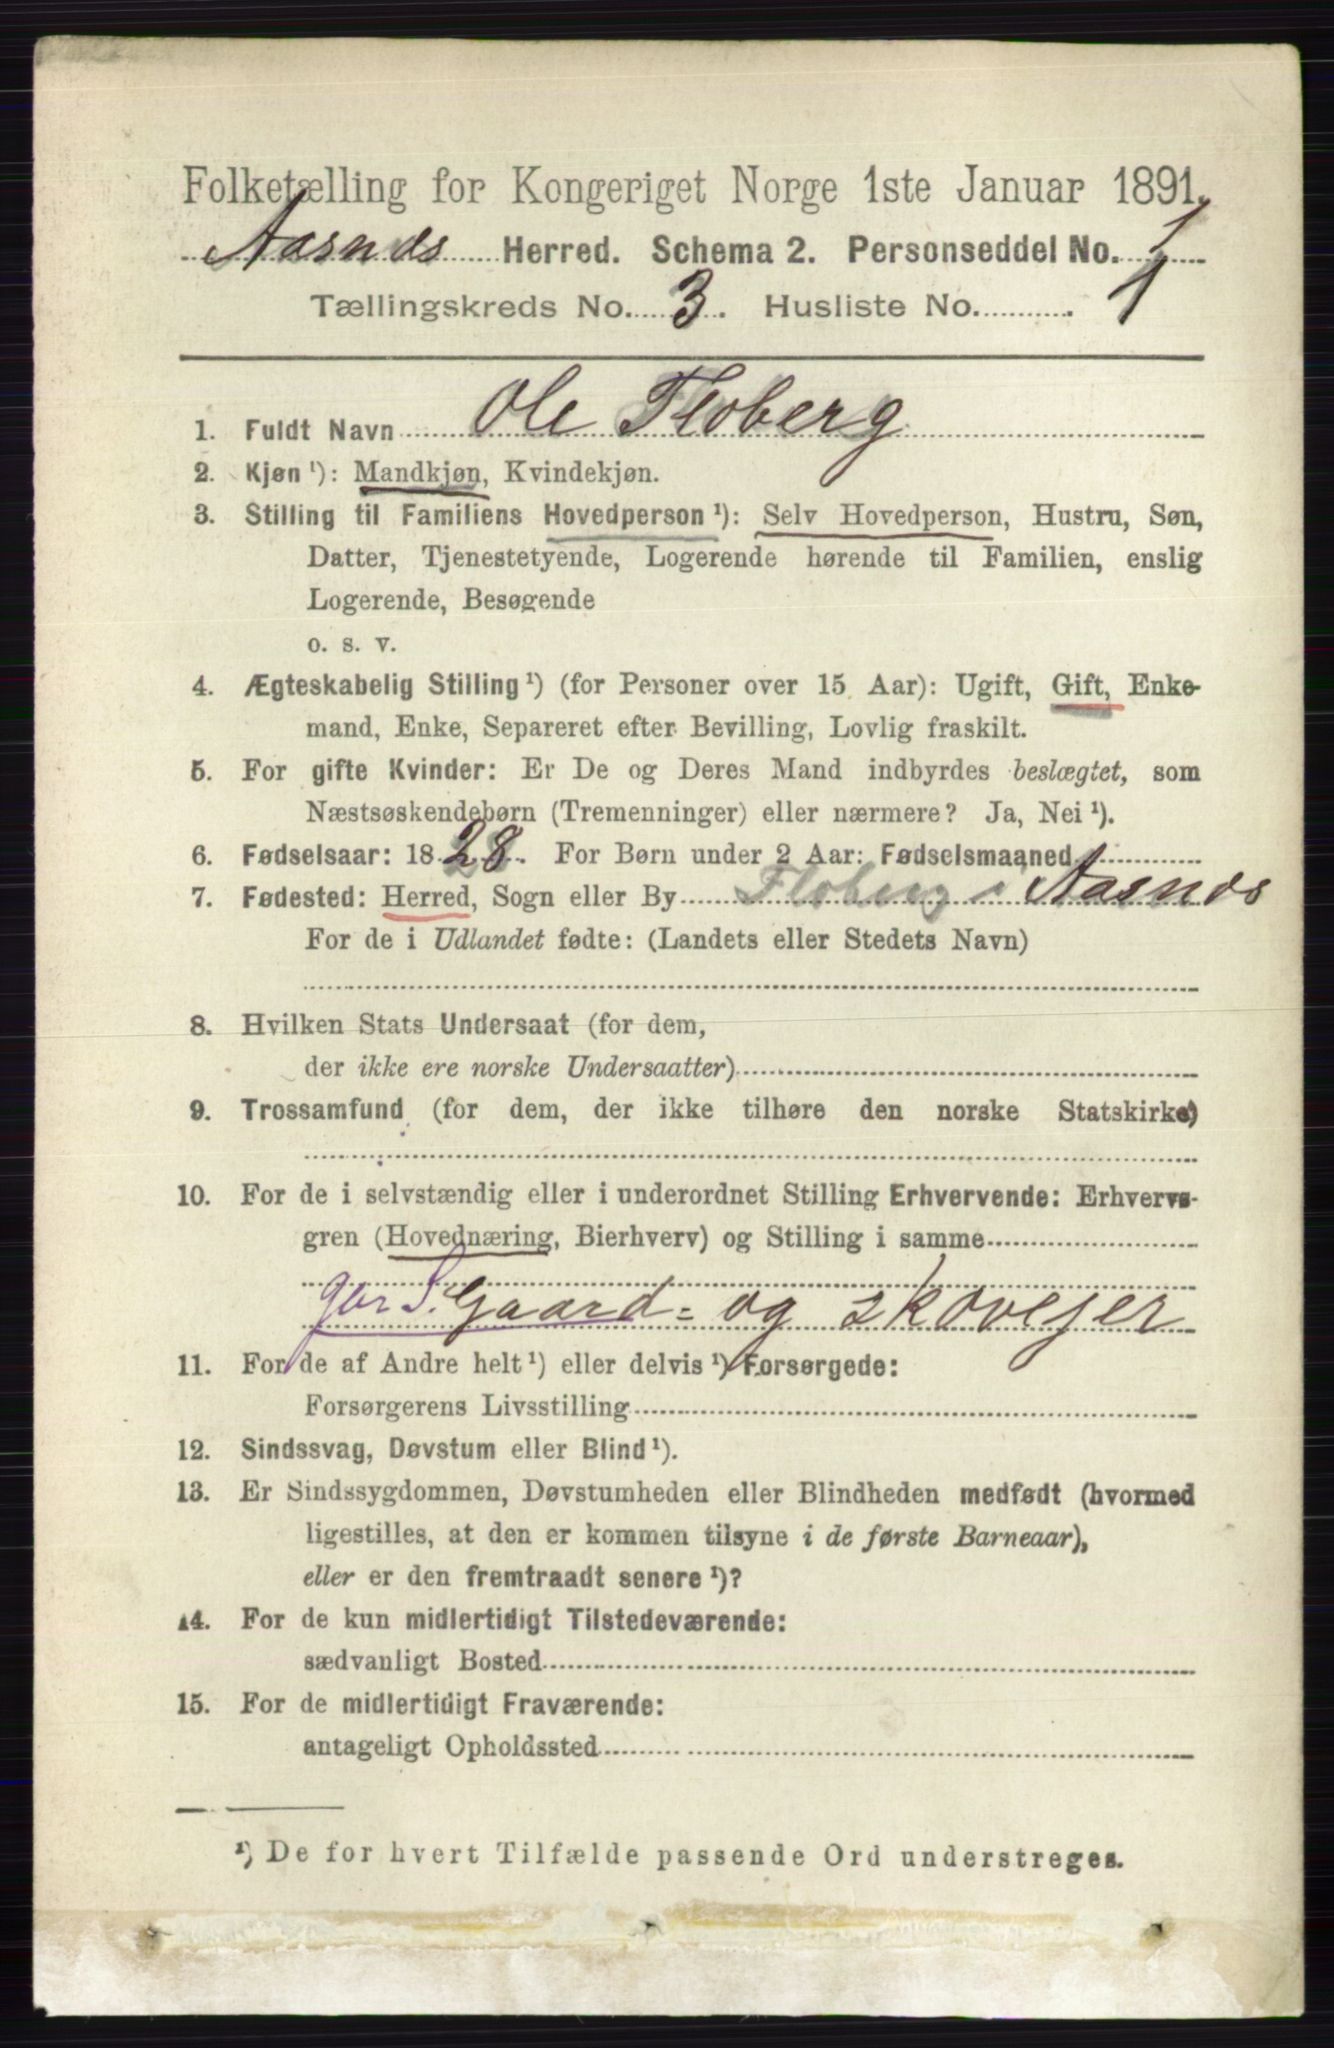 Folketælling for Kongeriget Norge 1ste Januar 1891.
Aasnes Herred. Schema 2. Personseddel No. 1
Tællingskreds No. 3. Husliste No. 1
1. Fuldt Navn Ole Floberg
2. Kjøn ¹): Mandkjøn, Kvindekjøn.
3. Stilling til Familiens Hovedperson ¹): Selv Hovedperson, Hustru, Søn,
Datter, Tjenestetyende, Logerende hørende til Familien, enslig
Logerende, Besøgende
o. s. v.
4. Ægteskabelig Stilling ¹) (for Personer over 15 Aar): Ugift, Gift, Enke-
mand, Enke, Separeret efter Bevilling, Lovlig fraskilt.
5. For gifte Kvinder: Er De og Deres Mand indbyrdes beslægtet, som
Næstsøskendebørn (Tremenninger) eller nærmere? Ja, Nei ¹).
6. Fødselsaar: 1828. For Børn under 2 Aar: Fødselsmaaned
7. Fødested: Herred, Sogn eller By Floberg i Aasnes
For de i Udlandet fødte: (Landets eller Stedets Navn)
8. Hvilken Stats Undersaat (for dem,
der ikke ere norske Undersaatter)
9. Trossamfund (for dem, der ikke tilhøre den norske Statskirke)
10. For de i selvstændig eller i underordnet Stilling Erhvervende: Erhvervs-
gren (Hovednæring, Bierhverv) og Stilling i samme
gbr S. Gaard- og skovejer
11. For de af Andre helt ¹) eller delvis ¹) Forsørgede:
Forsørgerens Livsstilling
12. Sindssvag, Døvstum eller Blind ¹).
13. Er Sindssygdommen, Døvstumheden eller Blindheden medfødt (hvormed
ligestilles, at den er kommen tilsyne i de første Barneaar),
eller er den fremtraadt senere ¹)?
14. For de kun midlertidigt Tilstedeværende:
sædvanligt Bosted
15. For de midlertidigt Fraværende:
antageligt Opholdssted
¹) De for hvert Tilfælde passende Ord understreges.